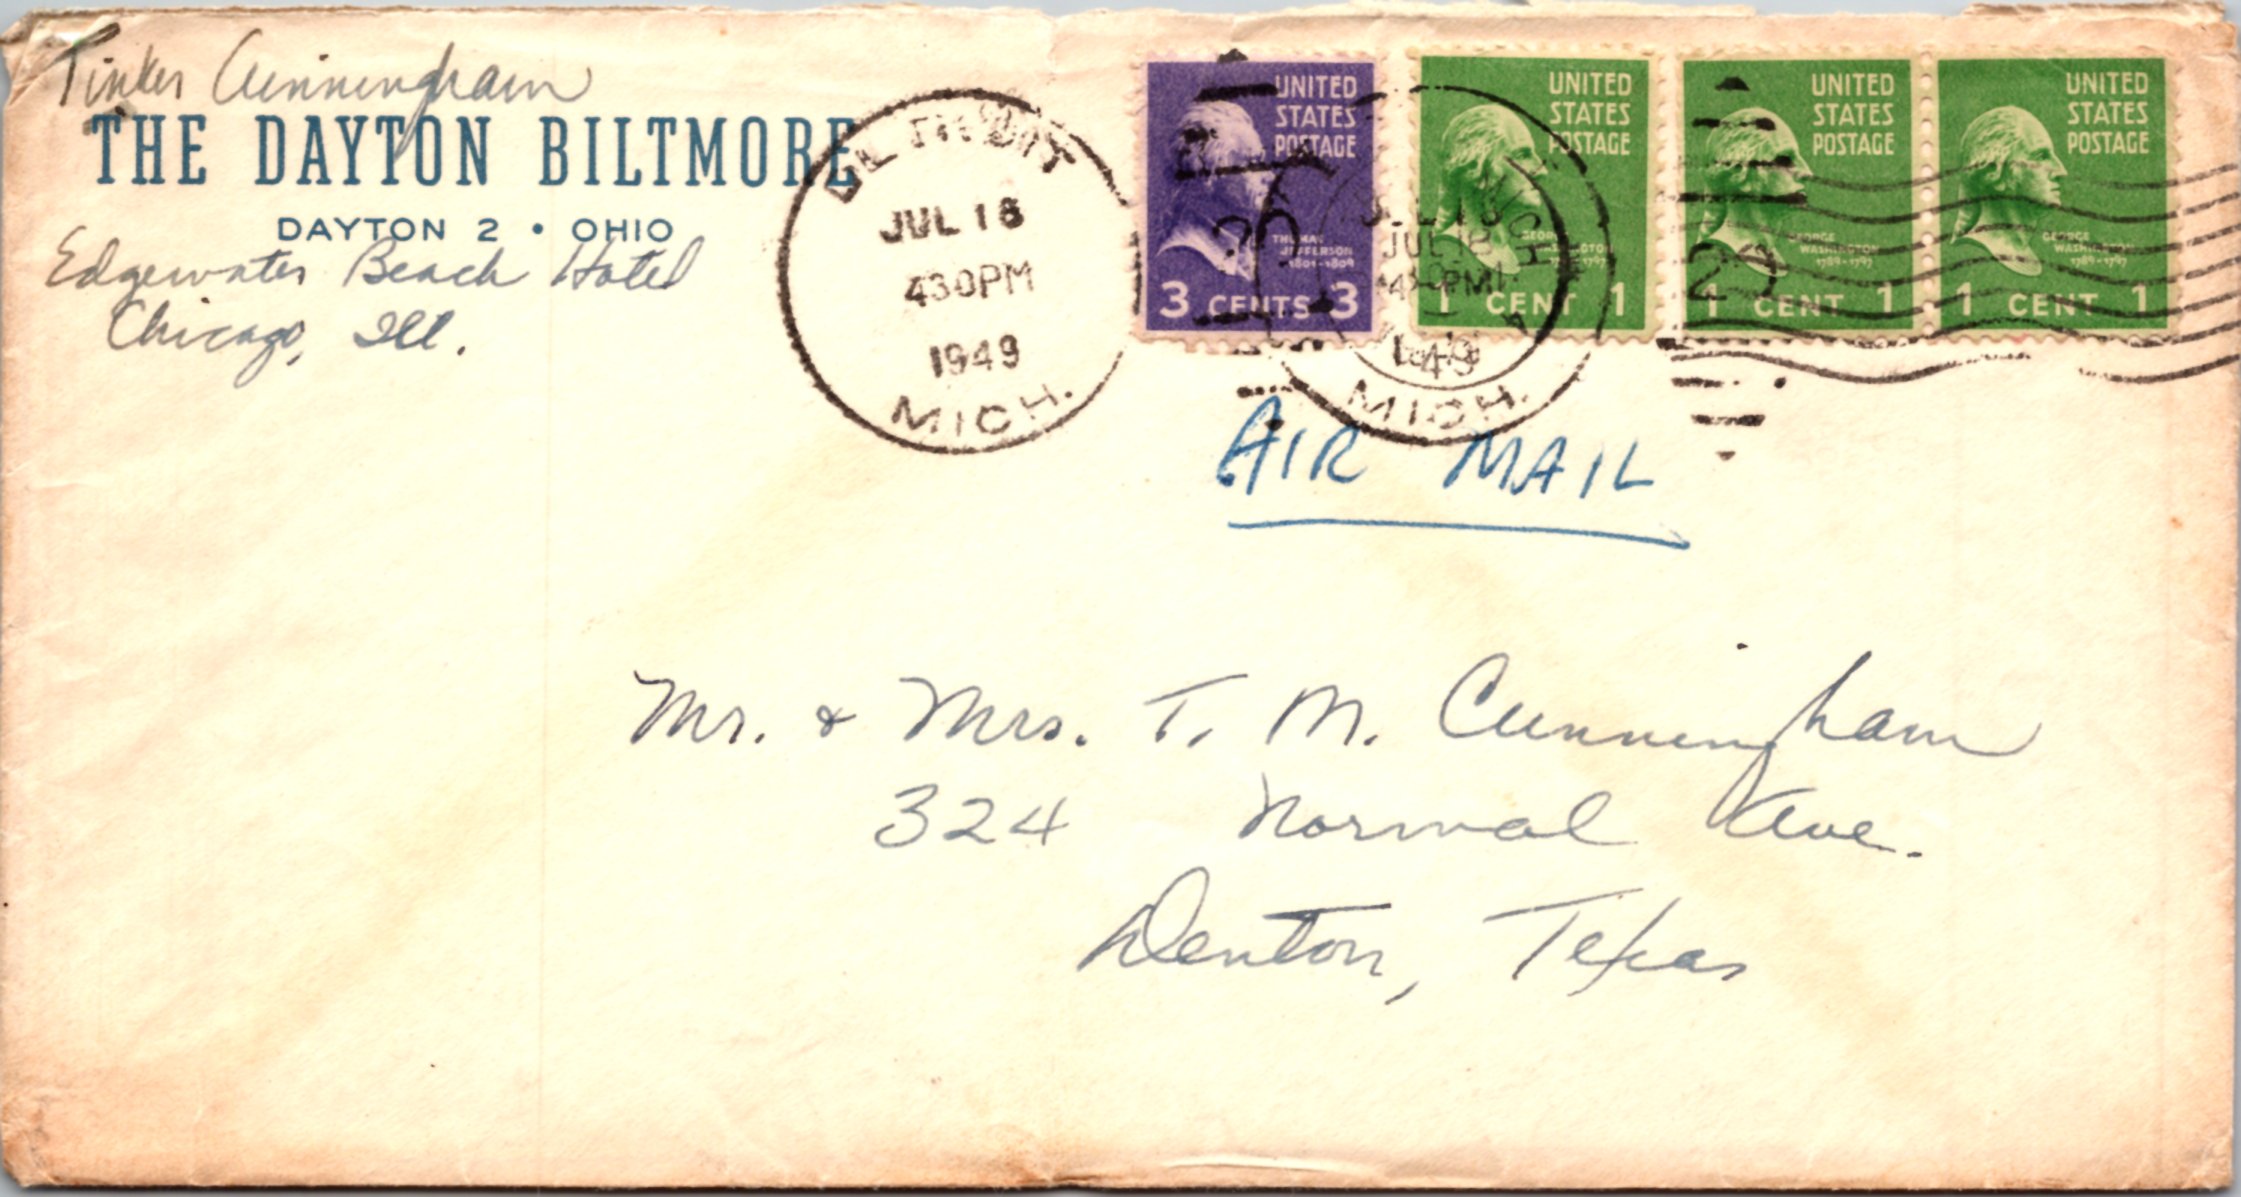 Tinker Cunningham
THE DAYTON BILTMORE
DAYTON 2 • OHIO
Edgewater Beach Hotel
Chicago, Ill.
DETROIT
JUL 18
430PM
1949
MICH.
UNITED
STATES
POSTAGE
THOMAS
JEFFERSON
1801-1809
3 CENTS 3
UNITED
STATES
POSTAGE
GEORGE
WASHINGTON
1789-1797
1 CENT 1
UNITED
STATES
POSTAGE
GEORGE
WASHINGTON
1789-1797
1 CENT 1
UNITED
STATES
POSTAGE
GEORGE
WASHINGTON
1789-1797
1 CENT 1
JUL 18
PM
1949
MICH.
AIR MAIL
Mr. & Mrs. T. M. Cunningham
324 Normal Ave.
Denton, Texas